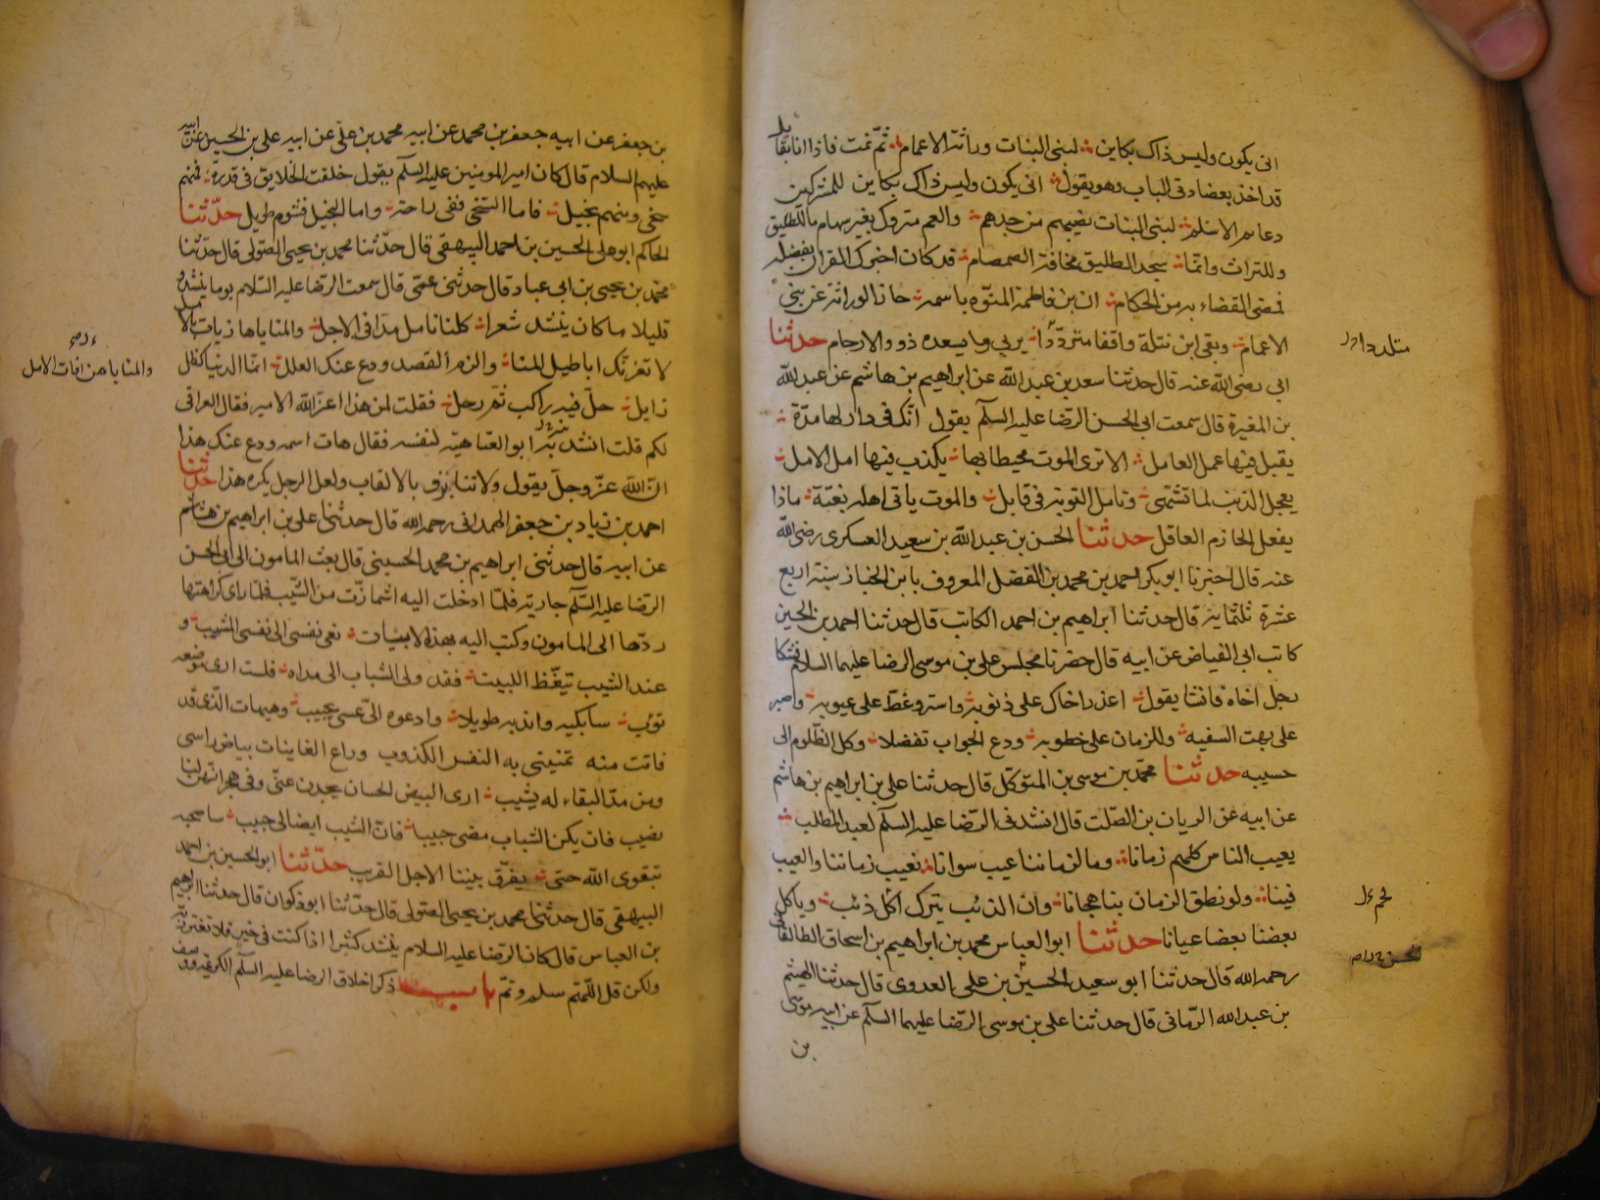 انى يكون وليس ذاك بكاين لبنى البنات وراثة الاعمام ثم نمت فاذا انا بقايل
قد اخذ بعضادتى الباب وهو يقول انى يكون وليس ذاك بكاين للمشركين
دعايم الاسلم لبنى البنات نصيبهم من جدهم والعم متروك بغير سهام ما للطليق
وللتراث وانما سجد الطليق مخافة الصمصام قد كان اخبرك القران بفضله
فمضى القضاء به من الحكام ان بن فاطمة المنوه باسمه حاز الوراثة عن بنى
الاعمام وبقى ابن نثلة واقفا مترددا يرثى ويسعده ذوو الارحام حدثنا
ابى رضى الله عنه قال حدثنا سعد بن عبد الله عن ابراهيم بن هاشم عن عبد الله
بن المغيرة قال سمعت ابى الحسن الرضا عليه السلم يقول انك فى دار لها مدة
يقبل فيها عمل العامل الا ترى الموت محيطا بها يكذب فيها امل الامل
يعجل الذنب لما تشتهى وتامل التوبة فى قابل والموت ياتى اهله بغتة ماذا
يفعل الحازم العاقل حدثنا الحسن بن عبد الله بن سعيد العسكرى رضى الله
عنه قال اخبرنا ابو بكر احمد بن محمد بن الفضل المعروف بابن الخباز سنة اربع
عشرة ثلثماية قال حدثنا ابراهيم بن احمد الكاتب قال حدثنا احمد بن الحسين
كاتب ابى الفياض عن ابيه قال حضرنا مجلس على بن موسى الرضا عليهما السلام فشكا
رجل اخاه فانشا يقول اعذر اخاك على ذنوبه واستر وغط على عيوبه واصبر
على بهت السفيه وللزمان على خطوبه ودع الجواب تفضلا وكل الظلوم الى
حسيبه حدثنا محمد بن موسى بن المتوكل قال حدثنا على بن ابراهيم بن هاشم
عن ابيه عن الريان بن الصلت قال انشدنى الرضا عليه السلم لعبد المطلب
يعيب الناس كلهم زمانا وما لزماننا عيب سوانا نعيب زماننا والعيب
فينا ولو نطق الزمان بنا هجانا وان الذئب يترك اكل ذئب وياكل
بعضنا بعضا عيانا حدثنا ابو العباس محمد بن ابراهيم بن اسحاق الطالقانى
رحمه الله قال حدثنا ابو سعيد الحسين بن على العدوى قال حدثنا الهيثم
بن عبد الله الرمانى قال حدثنا على بن موسى الرضا عليهما السلم عن ابيه موسى
بن
بن جعفر عن ابيه جعفر بن محمد عن ابيه محمد بن على عن ابيه على بن الحسين عن ابيه
عليهم السلام قال كان امير المومنين عليه السلم يقول خلقت الخلايق فى قدرة فمنهم
سخى ومنهم بخيل فاما السخى ففى راحة واما البخيل فشوم طويل حدثنا
الحاكم ابو على الحسين بن احمد البيهقى قال حدثنا محمد بن يحيى الصولى قال حدثنا
محمد بن يحيى بن ابى عباد قال حدثنى عمى قال سمعت الرضا عليه السلام يوما ينشد و
قليلا ما كان ينشد شعرا كلنا نامل مدا فى الاجل والمنايا ها زيات بالامل
والمنايا هن افات الامل
لا تغرنك اباطيل المنا والزم القصد ودع عنك العلل انما الدنيا كظل
زايل حل فيه راكب ثم رحل فقلت لمن هذا اعز الله الامير فقال لعراقى
لكم قلت انشدنيه ابو العتاهية لنفسه فقال هات اسمه ودع عنك هذا
ان الله عز وجل يقول ولا تنابزوا بالالقاب ولعل الرجل يكره هذا حدثنا
احمد بن زياد بن جعفر الهمدانى رحمه الله قال حدثنا على بن ابراهيم بن هاشم
عن ابيه قال حدثنى ابراهيم بن محمد الحسينى قال بعث المامون الى ابى الحسن
الرضا عليه السلم جارية فلما ادخلت اليه اشمازت من الشيب فلما راى كراهتها
ردها الى المامون وكتب اليه بهذه الابيات نعى نفسى الى نفسى المشيب و
عند الشيب تيعظ اللبيب فقد ولى الشباب الى مداه فلست ارى مواضعه
توب سابكيه واندبه طويلا وادعوه الى عسى يجيب وهيهات الذى قد
فات منه تمنيتى به النفس الكذوب وراع الغانيات بياض راسى
ومن مد البقاء له يشيب ارى البيض الحسان يحدن عنى وفى هجرانهن لنا
نصيب فان يكن الشباب مضى حبيبا فان الشيب ايضا لى حبيب ساصحبه
بتقوى الله حتى يفرق بيننا الاجل القريب حدثنا ابو الحسين بن احمد
البيهقى قال حدثنا محمد بن يحيى الصولى قال حدثنا ابو ذكوان قال حدثنا ابراهيم
بن العباس قال كان الرضا عليه السلام ينشد كثيرا اذا كنت فى خير فلا تغترر به
ولكن قل اللهم سلم وتم باب ذكر اخلاق الرضا عليه السلم الكريمة ووصف